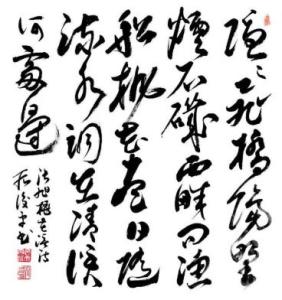 隐隐飞桥隔野
烟石矶西畔问渔
船桃花尽日随
流水洞在清溪
何处边
张旭桃花溪诗